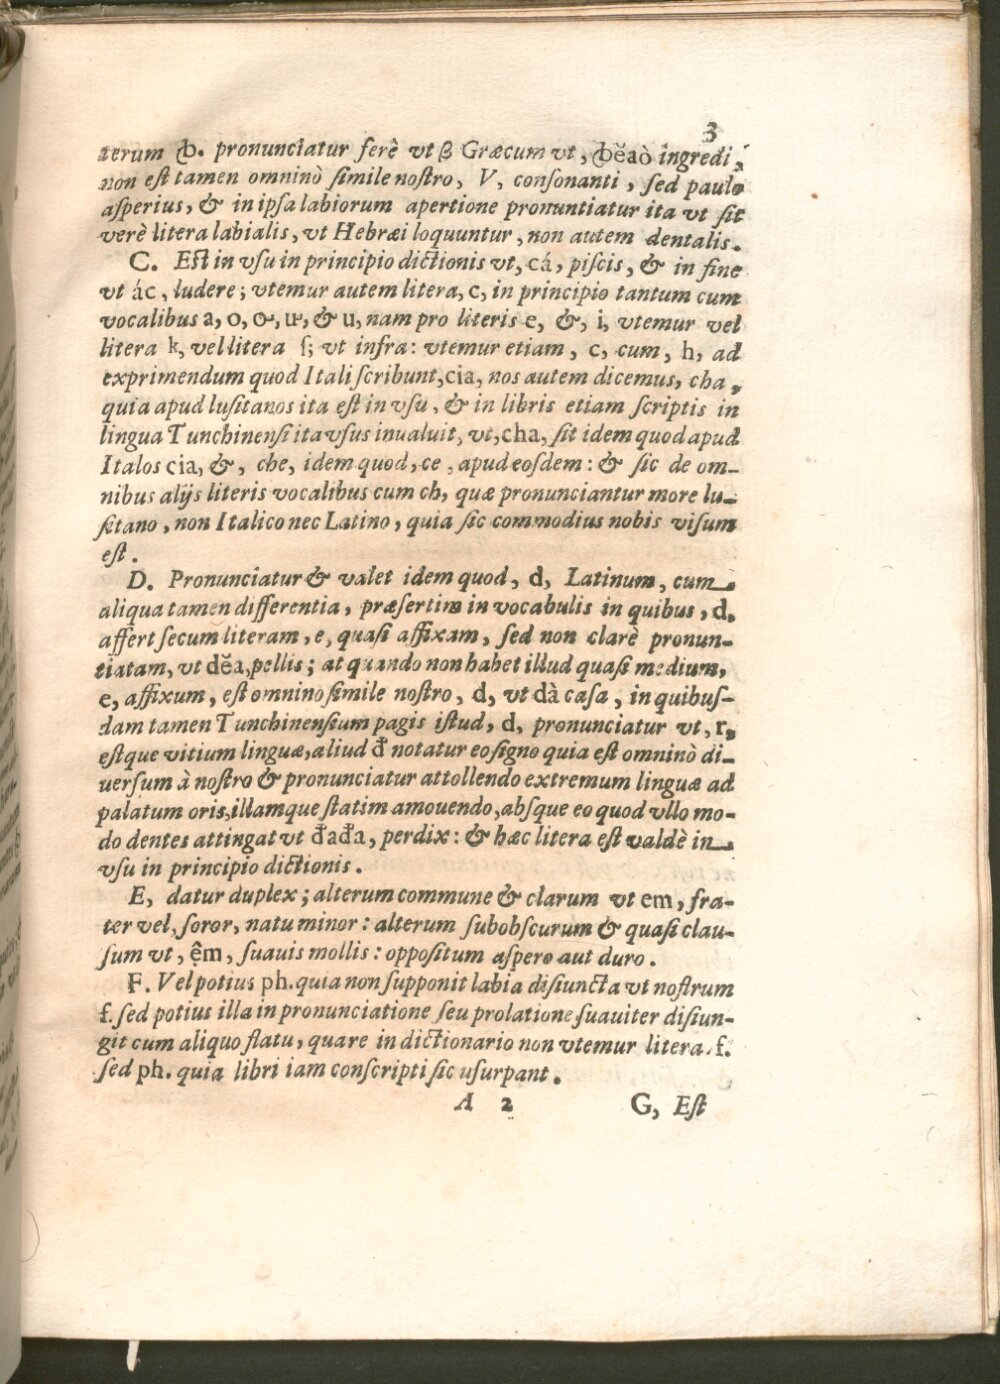 3
terum ꞗ. pronunciatur ferè vt β Græcum vt, ꞗĕaò ingredi,
non eſt tamen omninò ſimile noſtro, V, conſonanti, ſed paulo
aſperius, & in ipſa labiorum apertione pronuntiatur ita vt ſit
verè litera labialis, vt Hebræi loquuntur, non autem dentalis.
C. Eſt in vſu in principio dictionis vt, cá, piſcis, & in fine
vt ác, ludere; vtemur autem litera, c, in principio tantum cum
vocalibus a, o, ơ, ư, & u, nam pro literis e, &, i, vtemur vel
litera k, vel litera ſ; vt infra: vtemur etiam, c, cum, h, ad
exprimendum quod Itali ſcribunt, cia, nos autem dicemus, cha,
quia apud luſitanos ita eſt in vſu, & in libris etiam ſcriptis in
lingua Tunchinenſi ita vſus inualuit, vt, cha, ſit idem quod apud
Italos cia, &, che, idem quod, ce, apud eoſdem: & ſic de om-
nibus alijs literis vocalibus cum ch, quæ pronunciantur more lu-
ſitano, non Italico nec Latino, quia ſic commodius nobis viſum
eſt.
D. Pronunciatur & valet idem quod, d, Latinum, cum
aliqua tamen differentia, præſertim in vocabulis in quibus, d,
affert ſecum literam, e, quaſi affixam, ſed non clarè pronun-
tiatam, vt dĕa, pellis; at quando non habet illud quaſi medium,
e, affixum, eſt omnino ſimile noſtro, d, vt dà caſa, in quibuſ-
dam tamen Tunchinenſium pagis iſtud, d, pronunciatur vt, r,
eſtque vitium linguæ, aliud đ notatur eo ſigno quia eſt omninò di-
uerſum à noſtro & pronunciatur attollendo extremum linguæ ad
palatum oris, illamque ſtatim amouendo, abſque eo quod vllo mo-
do dentes attingat vt đađa, perdix: & hæc litera eſt valdè in
vſu in principio dictionis.
E, datur duplex; alterum commune & clarum vt em, fra-
ter vel, ſoror, natu minor: alterum ſubobſcurum & quaſi clau-
ſum vt, êm, ſuauis mollis: oppoſitum aſpero aut duro.
F. Vel potius ph. quia non ſupponit labia diſiuncta vt noſtrum
f. ſed potius illa in pronunciatione ſeu prolatione ſuauiter diſiun-
git cum aliquo flatu, quare in dictionario non vtemur litera. f.
ſed ph. quia libri iam conſcripti ſic uſurpant.
A 2 G, Eſt